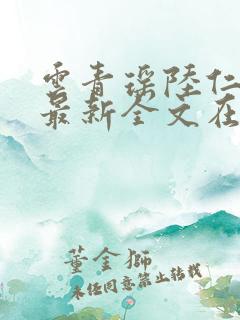 雲青瑶陸仁
最新全文在
董金獅
未经同意禁止转载